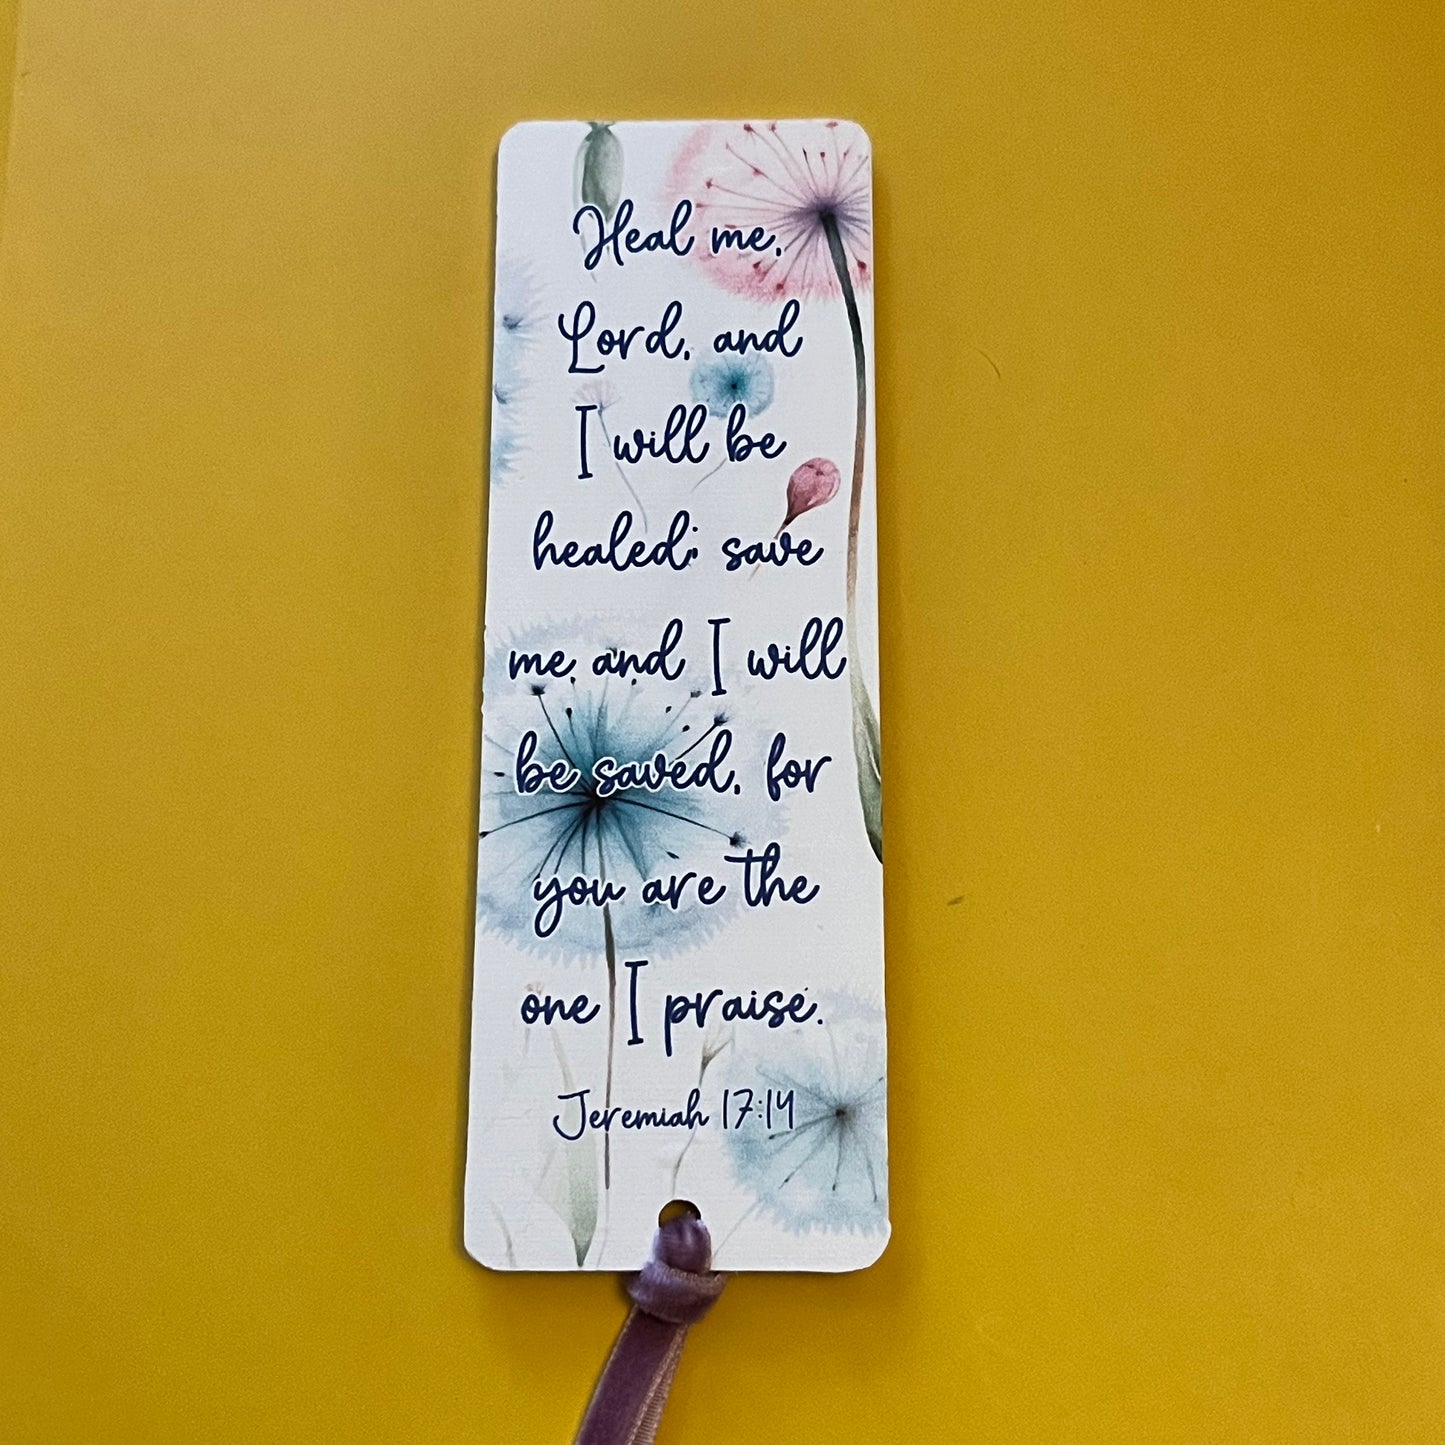 Heal me,
Lord, and
I will be
healed; save
me and I will
be saved, for
you are the
one I praise.
Jeremiah 17:14